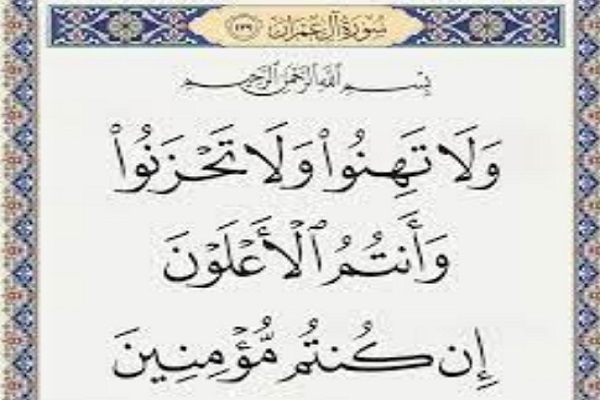 سورة آل عمران ﴿١٣٩﴾
بِسْمِ اللَّهِ الرَّحْمَٰنِ الرَّحِيمِ
وَلَا تَهِنُوا۟ وَلَا تَحْزَنُوا۟
وَأَنتُمُ ٱلْأَعْلَوْنَ
إِن كُنتُم مُّؤْمِنِينَ